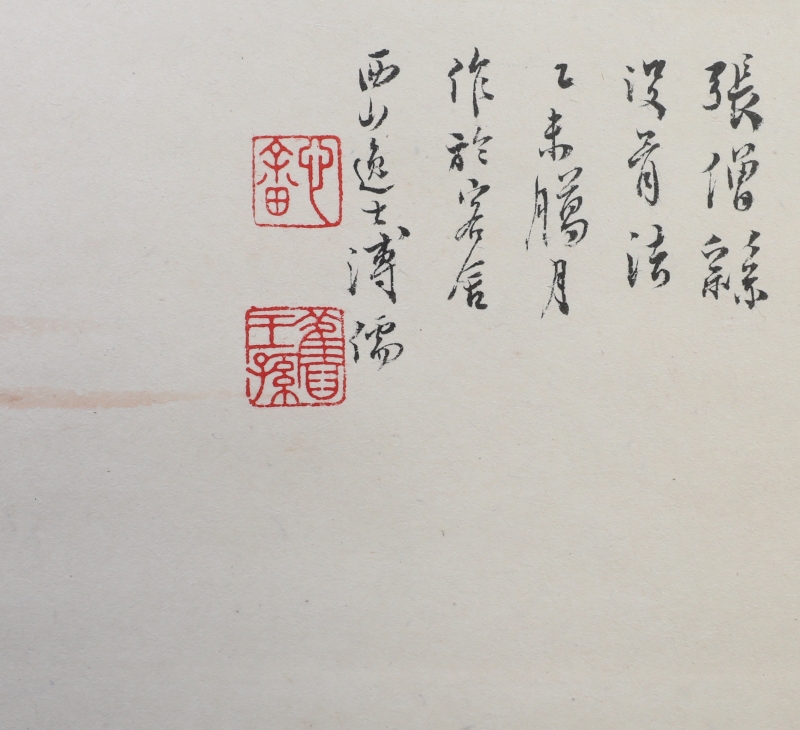 張僧繇
没骨法
乙未臘月
作於客舍
西山逸士溥儒
心畬
舊王孫